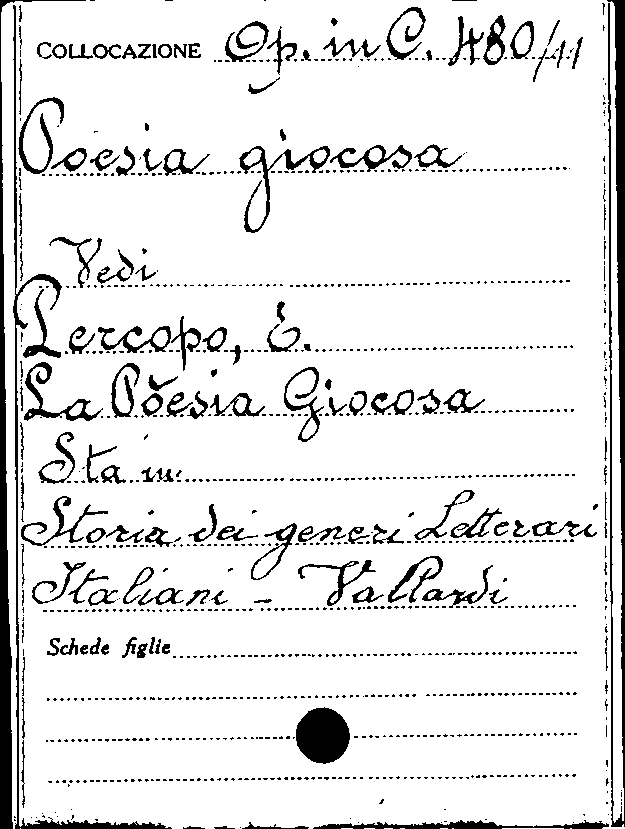 COLLOCAZIONE Op. in C. 480/11
Poesia giocosa
Vedi
Percopo, E.
La Poesia Giocosa
Sta in
Storia dei generi Letterari
Italiani - Vallardi
Schede figlie